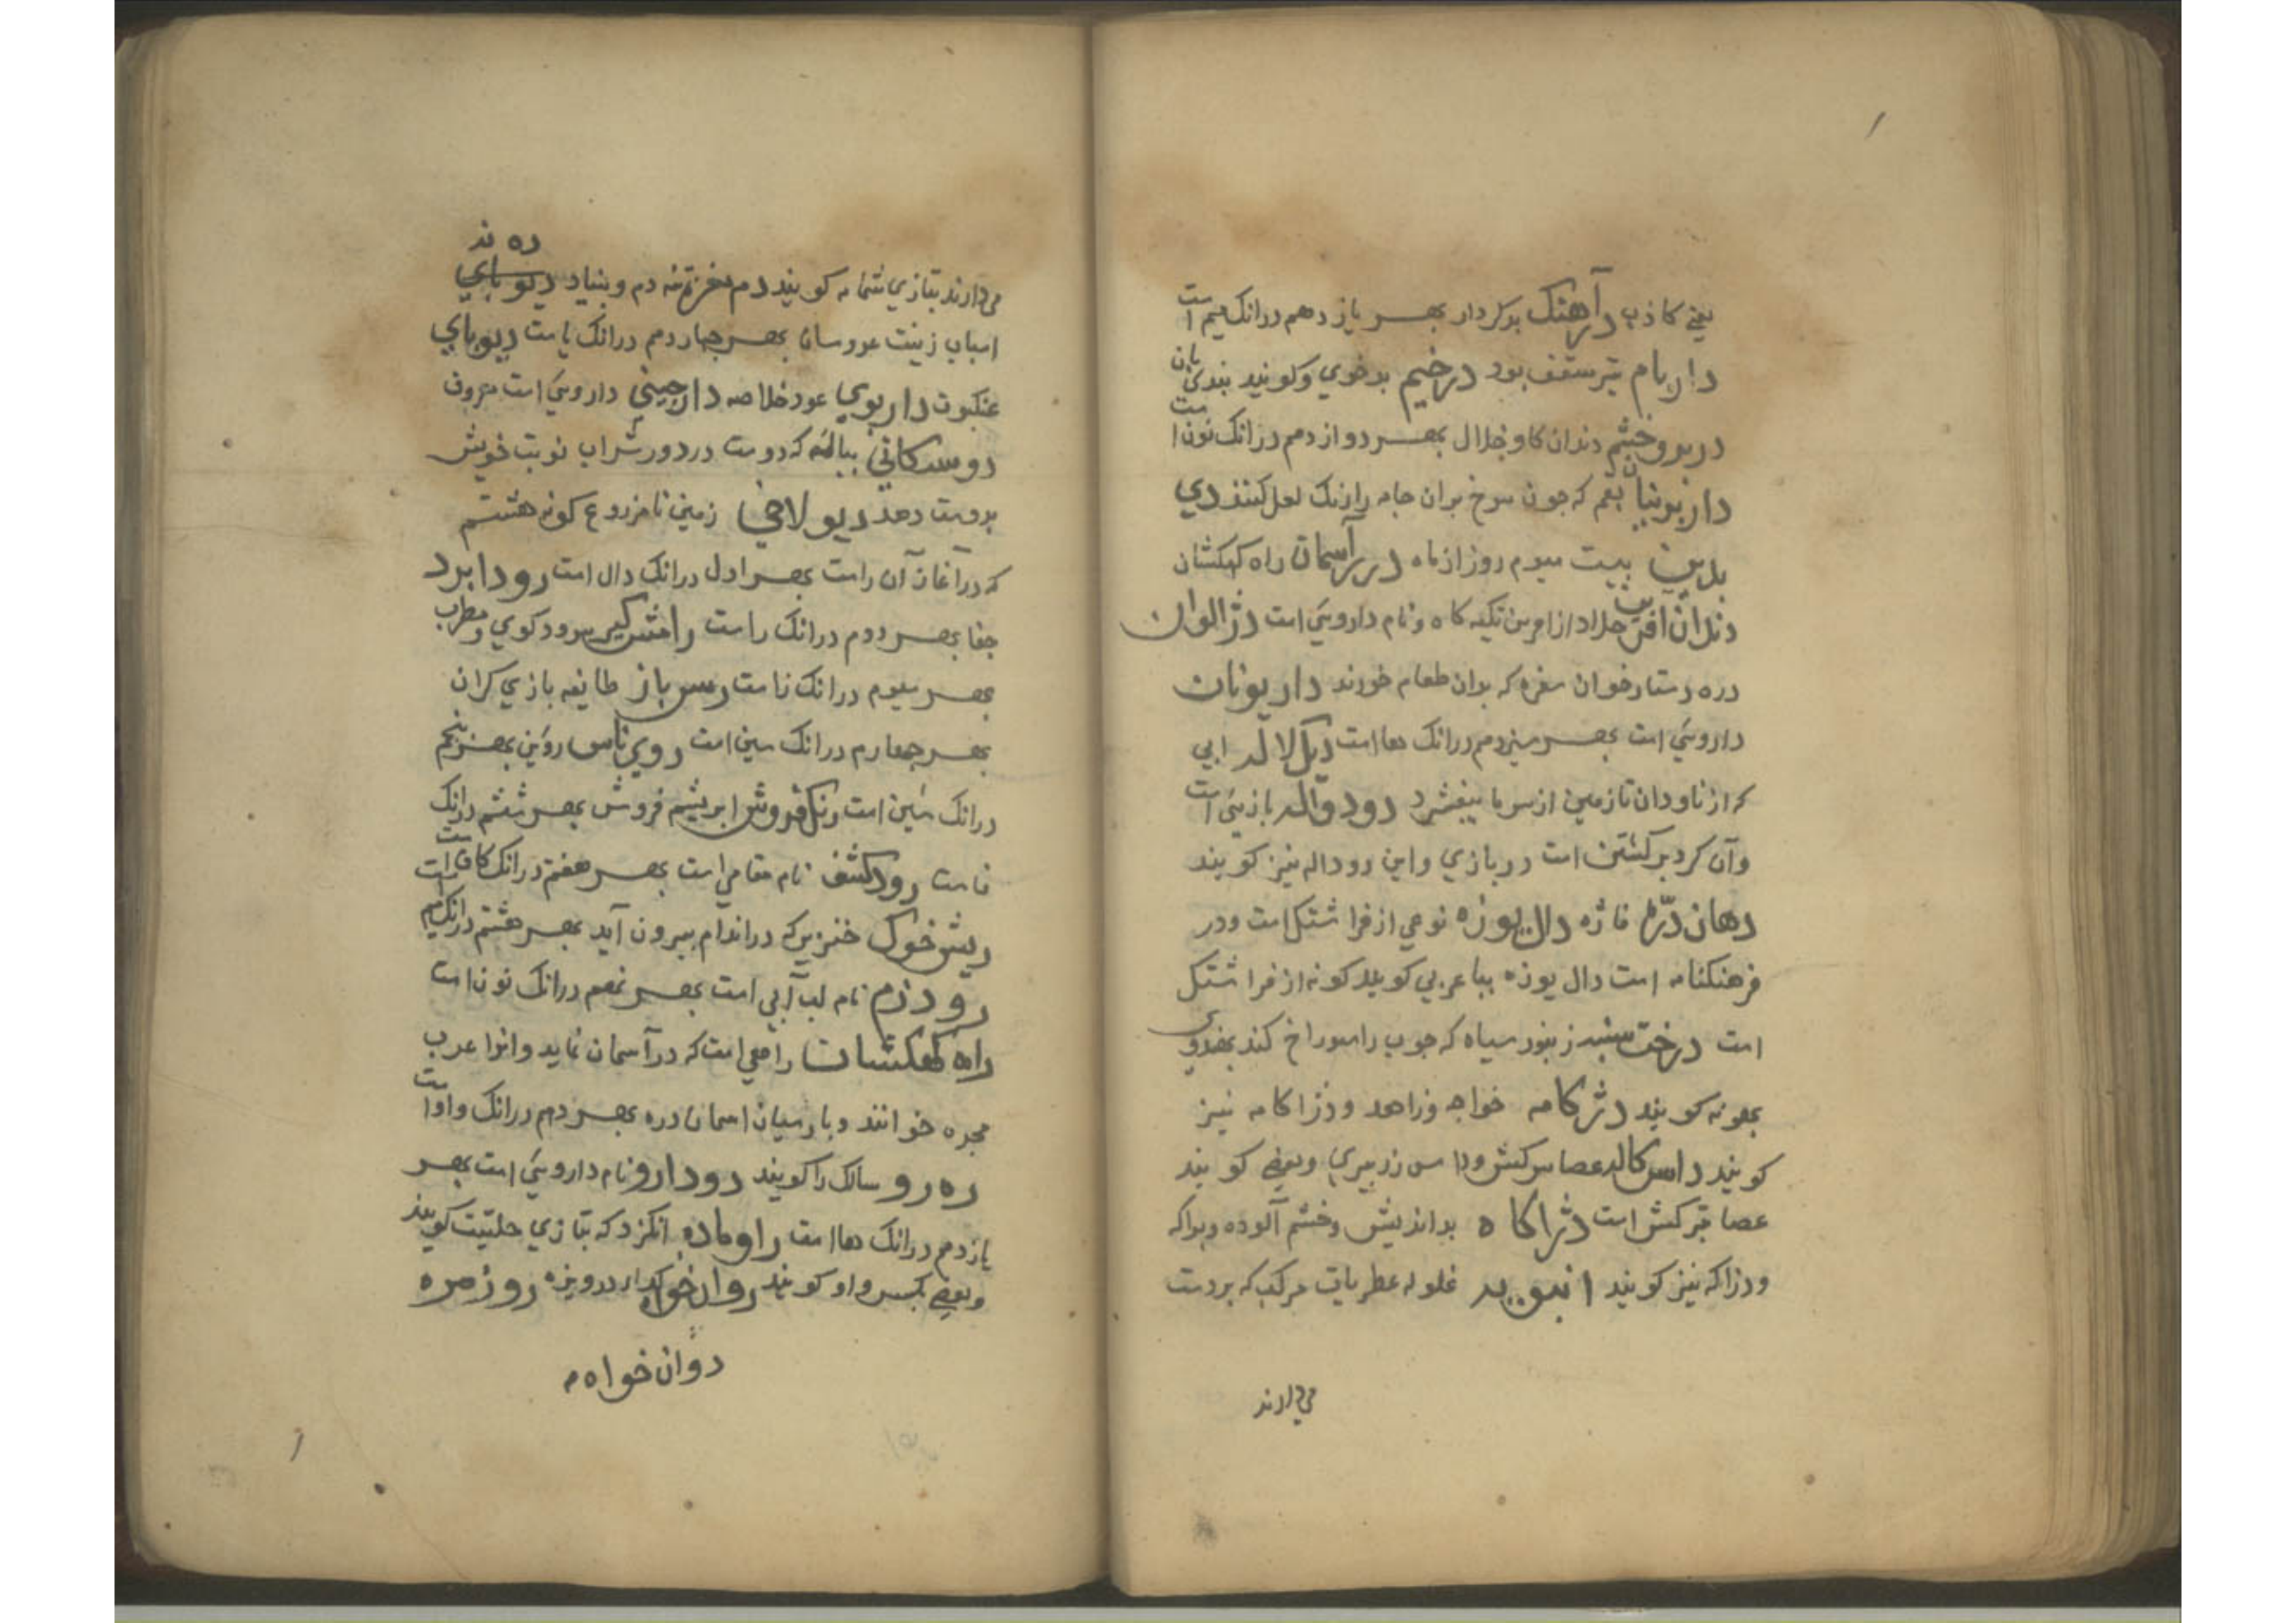 یعنے کاذب درآهنک بدکردار بهر یازدهم درانک میم است
داربام تیرسقف بود درخیم بدخوي وکویند بندیبان
دربروخشم دندان کاو خلال بهر دوازدهم درانک نون است
داربرنیان بقم که جون سرخ بران جامه را رنک لعل کنند دي
بدین بیست سیوم روز از ماه درآسمان راه کهکشان
تکیه کاه و نام داروئي است دژالوان
دره دستارخوان سفره که بدان طعام خورند داریونان
داروئي است بهر سیزدهم درانک هاا ست دیکلاله ابي
که از ناودان تا زمین از سرما بیفشرد رودواله بازئي است
وآن کرد برکشتن است در بازي واین روداله نیز کویند
دهان درّه فاژه دال یوزه نوعي از فراشتک است ودر
فرهنکنامه است دال یوزه ببا عربي کویند کونه از فراشتک
است درخت سنبه زنبور سیاه که جوب را سوراخ کند بهندوي
بهونه کویند دژکامه خواجه وزاهد ودژاکامه نیز
کویند داسکاله عصا سرکش وداس زرببري وبعضے کویند
عصا سرکش است دژاکاه بداندیش وخشم آلوده
ودزاکه نیز کویند انبویه غلوله عطریات مرکب که بردست
مي دارند
ده ند
مي دارند بتازي شمامه کویند دم وبنیاد دیوباي
اسباب زینت عروسان بهر جهاردهم درانک یا ست دیوباي
عنکبوت داربوي عود خلاصه دارجیني داروئي است معروف
دوستکاني بیاله که دوست در دور شراب نوبت خویش
بدوست دهد دیولاخي زمین نامزروع کونه هشتم
که درآغاز آن راست بهر اول درانک دال است رودابرد
جفا بهر دوم درانک را ست رامشکر سرودکوي ومطرب
بهر سیوم درانک زا ست رسن باز طایفه بازي کران
بهر جهارم درانک سین است روي ناس روئین بهر پنجم
درانک شین است رنک فروش ابریشم فروش بهر ششم درانک
فا ست رودکشف نام مقامي است بهر هفتم درانک کاف است
ریش خوک خنزیر که دراندام بیرون آید بهر هشتم درانک میم
رودزم نام لب آبي است بهر نهم درانک نون است
راه کهکشان راهي است که درآسمان نماید وانرا عرب
مجره خوانند وبارسیان اسمان دره بهر دهم درانک واو است
ره رو سالک را کویند رودارو نام داروئي است بهر
یازدهم درانک هاا ست راوماده انکزد که بتازي حلتیت کویند
وبعضے بکسر واو کویند روان خواه کدا ودرویزه روزمره
روان خواه م